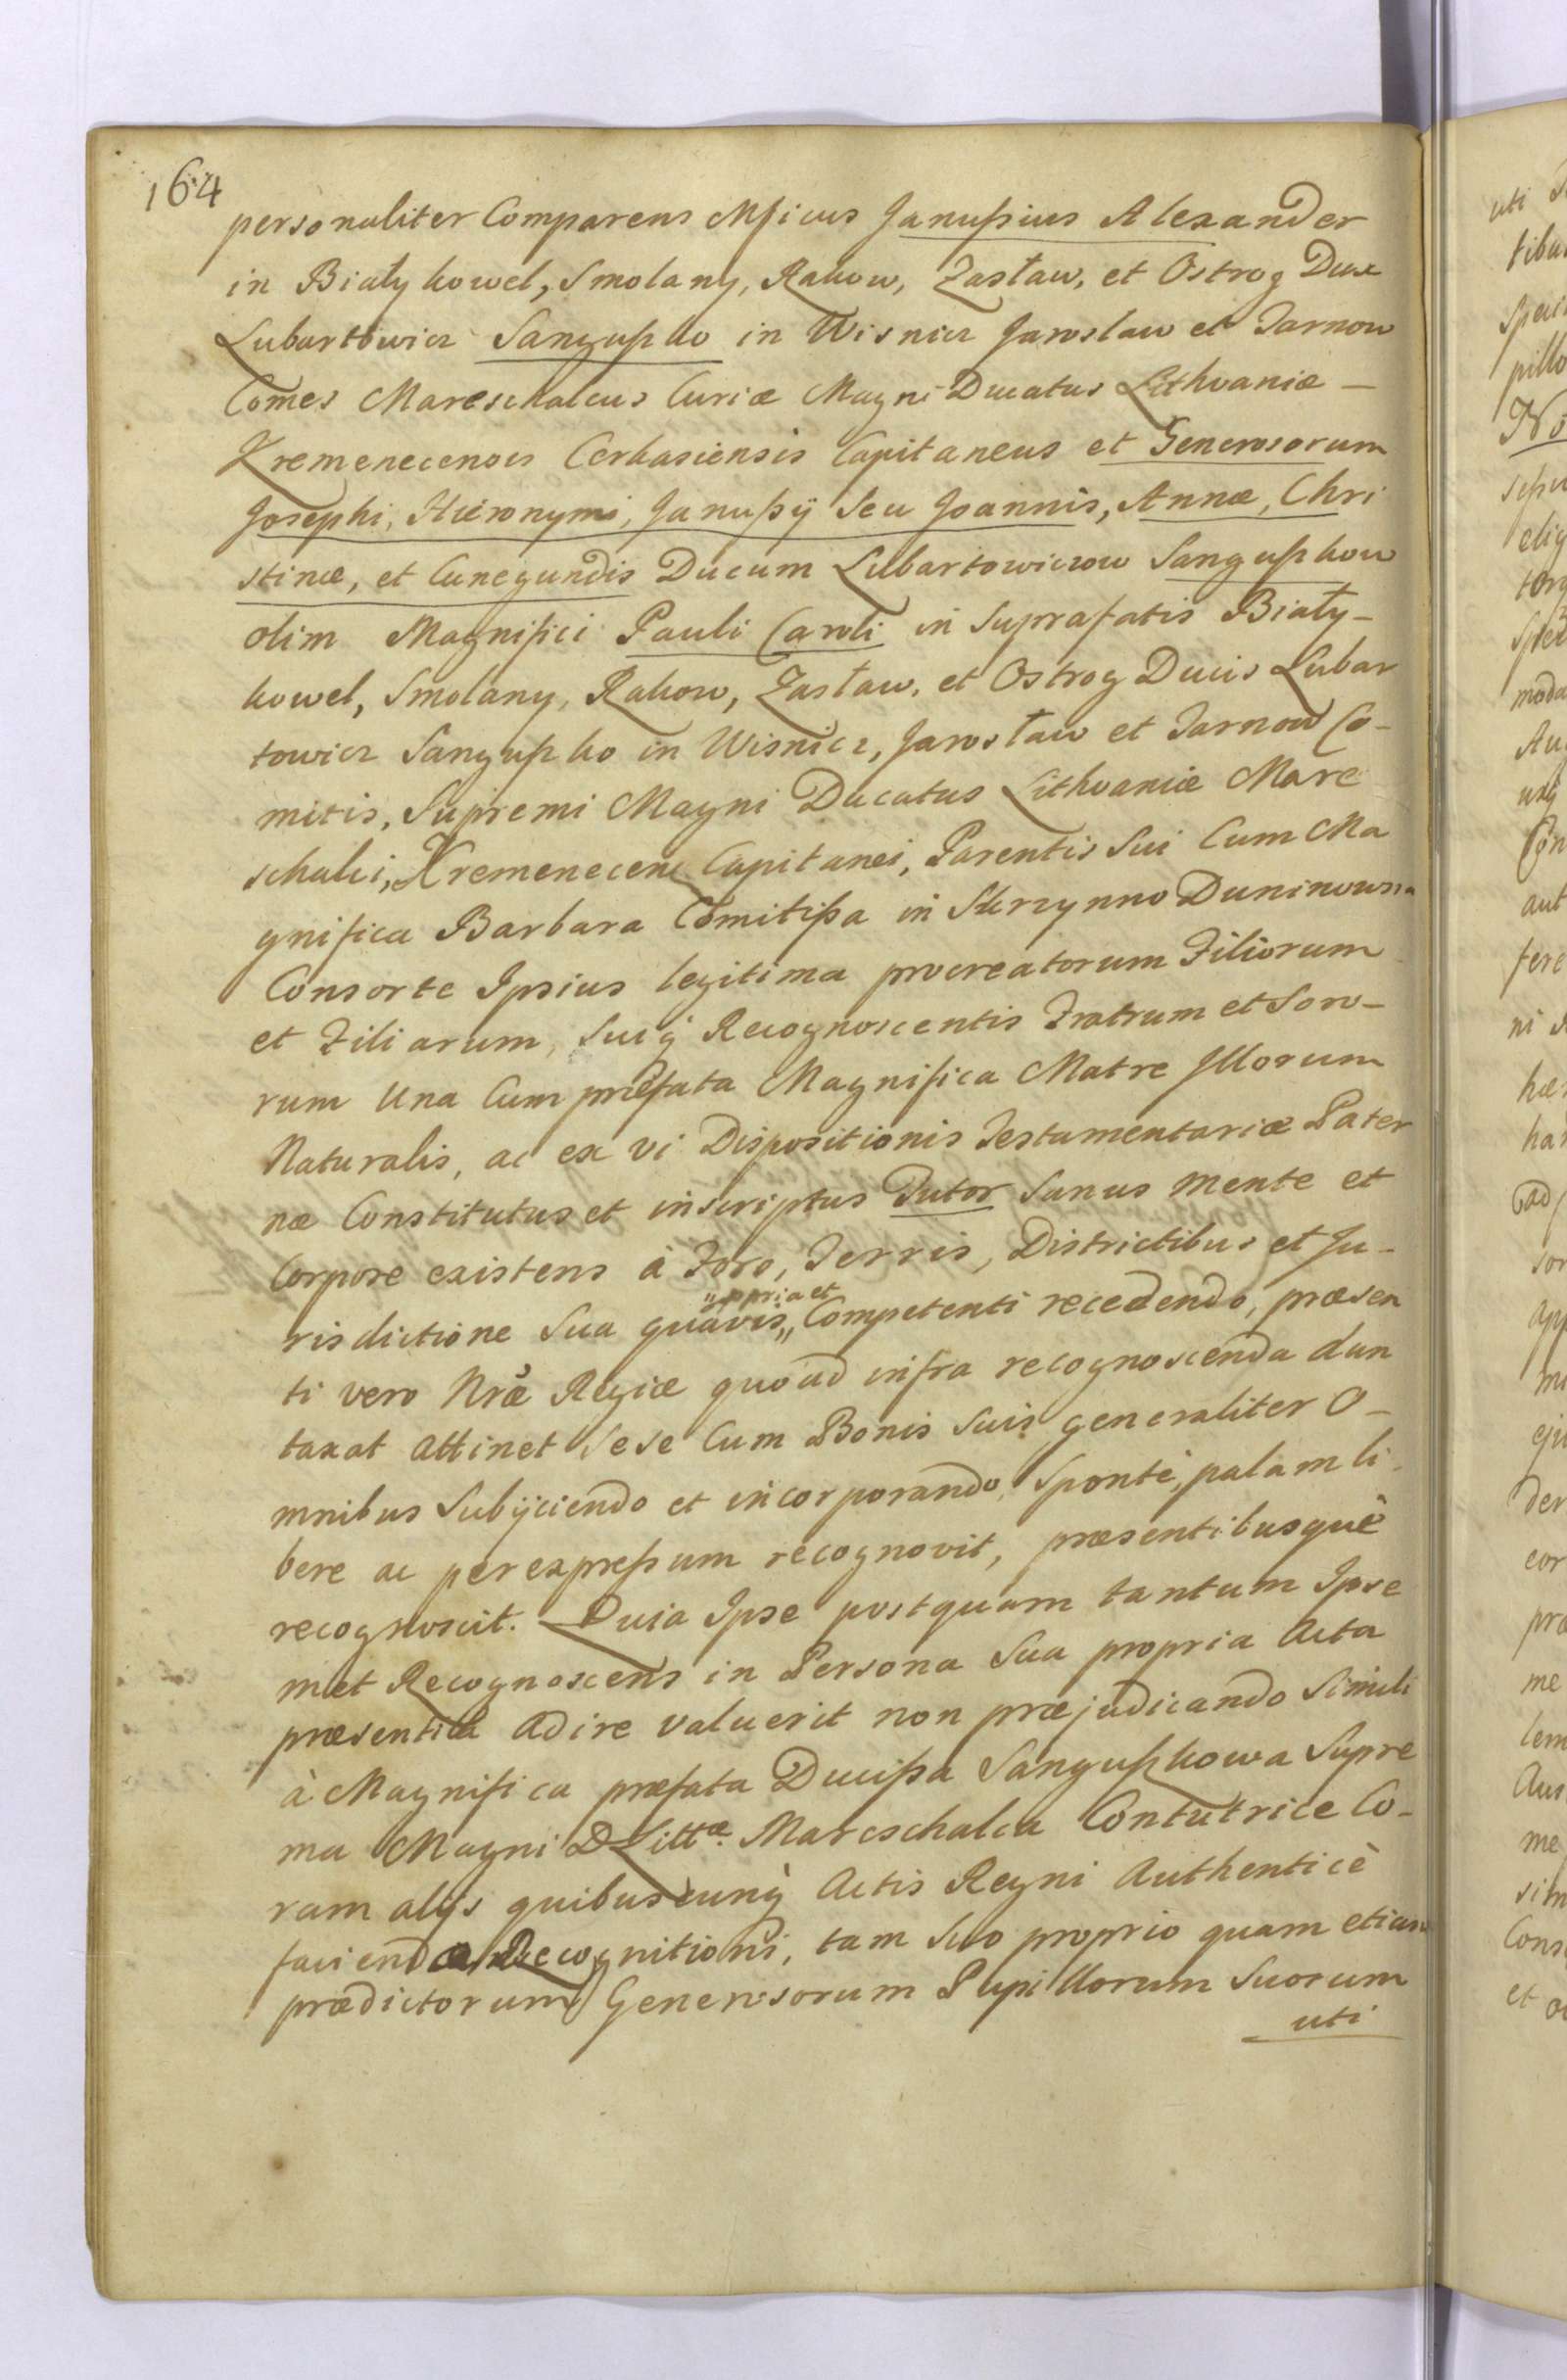 164
personaliter Comparens Mficus Janußius Alexander
in Biały kowel, Smolany, Rakow, Zasław, et Ostrog Dux
Lubartowicz Sangußko in Wisnicz Jaroslaw et Tarnow
Comes Mareschalcus Curiæ Magni Ducatus Lithvaniæ —
Kremenecensis Cerkasiensis Capitaneus et Generosorum
Josephi, Hieronymi, Janußÿ seu Joannis, Annæ, Chri
stinæ, et Cunegundis Ducum Lubartowiczow Sangußkow
olim Magnifici Pauli Caroli in suprafatis Biały-
kowel, Smolany, Rakow, Zasław, et Ostrog Ducis Lubar
towicz Sangußko in Wisnicz, Jarosław et Tarnow Co-
mitis, Supremi Magni Ducatus Lithvaniæ Mare
schalci, Kremenecen Capitanei, Parentis sui Cum Ma
gnifica Barbara Comitißa in Skrzynno Duninowna
Consorte Ipsius legitima procreatorum Filiorum
et Filiarum, suiq Recognoscentis Fratrum et Soro-
rum Una Cum præfata Magnifica Matre Illorum
Naturalis, ac ex vi Dispositionis Testamentariæ Pater
næ Constitutus et inscriptus Tutor Sanus mente et
Corpore existens à Foro, Terris, Districtibus et Ju-
"ppria et
risdictione sua quavis" Competenti recedendo, præsen
ti vero Nræ Regiæ quoad infra recognoscenda dun
taxat attinet sese Cum Bonis suis generaliter O-
mnibus Subÿciendo et incorporando, Sponte, palam li-
bere ac per expreßum recognovit, præsentibusquè
recognoscit. Quia Ipse postquam tantum Ipse
met Recognoscens in Persona sua propria Acta
præsentia adire valuerit non præjudicando Simili
à Magnifica præfata Ducißa Sangußkowa Supre
ma Magni D Littæ. Mareschalca Contutrice Co-
ram alÿs quibuscunq Actis Regni Authenticè
faciendæ Recognitioni, tam suo proprio quam etiam
prædictorum Generosorum Pupillorum Suorum
uti